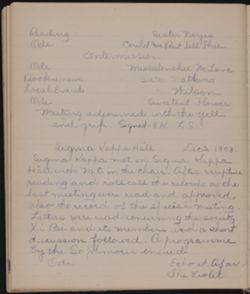 Reading Sister Noyes
Ode Could We But Tell Thee
Intermission
Ode Love
Book Review Sister Watkins
Local Events Wilson
Ode Sweetest Flower
Meeting adjourned with the yell
and grip. Signed L. S.
Sigma Kappa Hall Dec 2 1903
Sigma Kappa met in Sigma Kappa
Hall with in the chair. After scripture
reading and roll call the records of the
last meeting were read and approved
also the record of the special meeting
Letters were read concerning the society
Xi Psi and its members and a short
discussion followed. A programme
by the Sophomores ensued
Ode Echo it Afar
The Violet